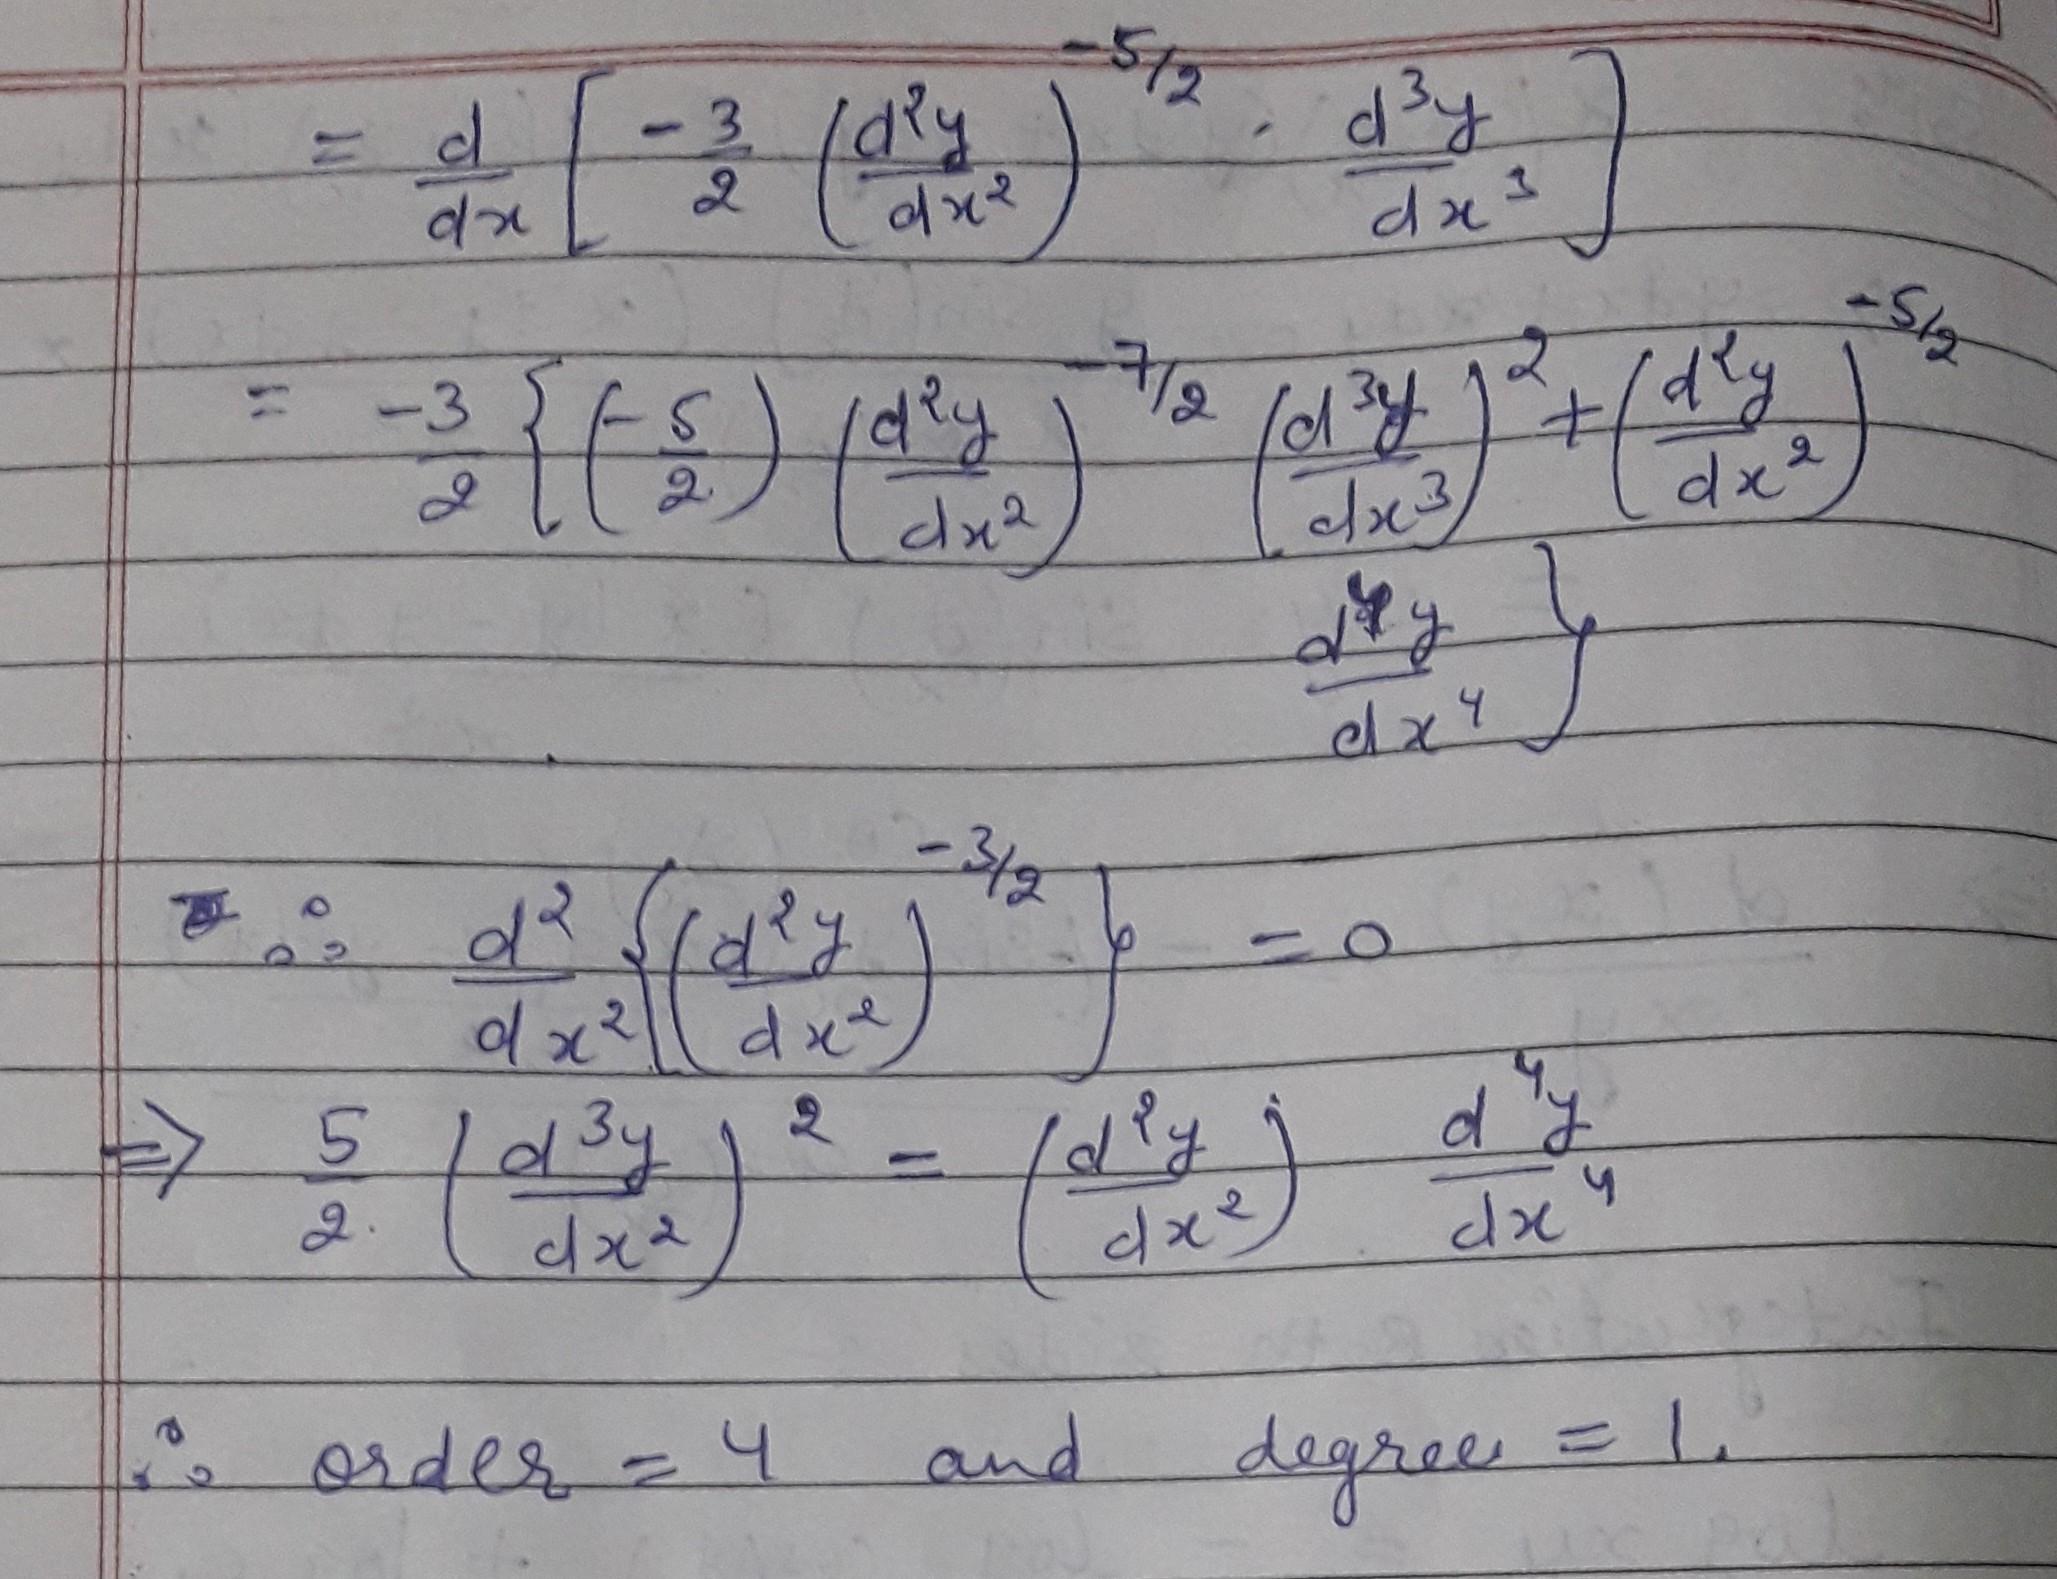 = d/dx [ -3/2 (d²y/dx²)^(-5/2) · d³y/dx³ ]
= -3/2 { (-5/2) (d²y/dx²)^(-7/2) (d³y/dx³)² + (d²y/dx²)^(-5/2)
d⁴y/dx⁴ }
∴ d²/dx² { (d²y/dx²)^(-3/2) } = 0
⇒ 5/2 (d³y/dx²)² = (d²y/dx²) d⁴y/dx⁴
∴ order = 4 and degree = 1.